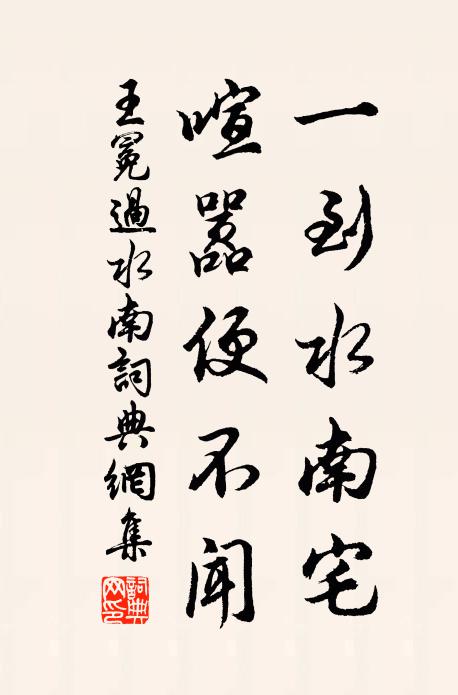 一到水南宅
喧嚣便不闻
王冕過水南詞典網集
詞典网印